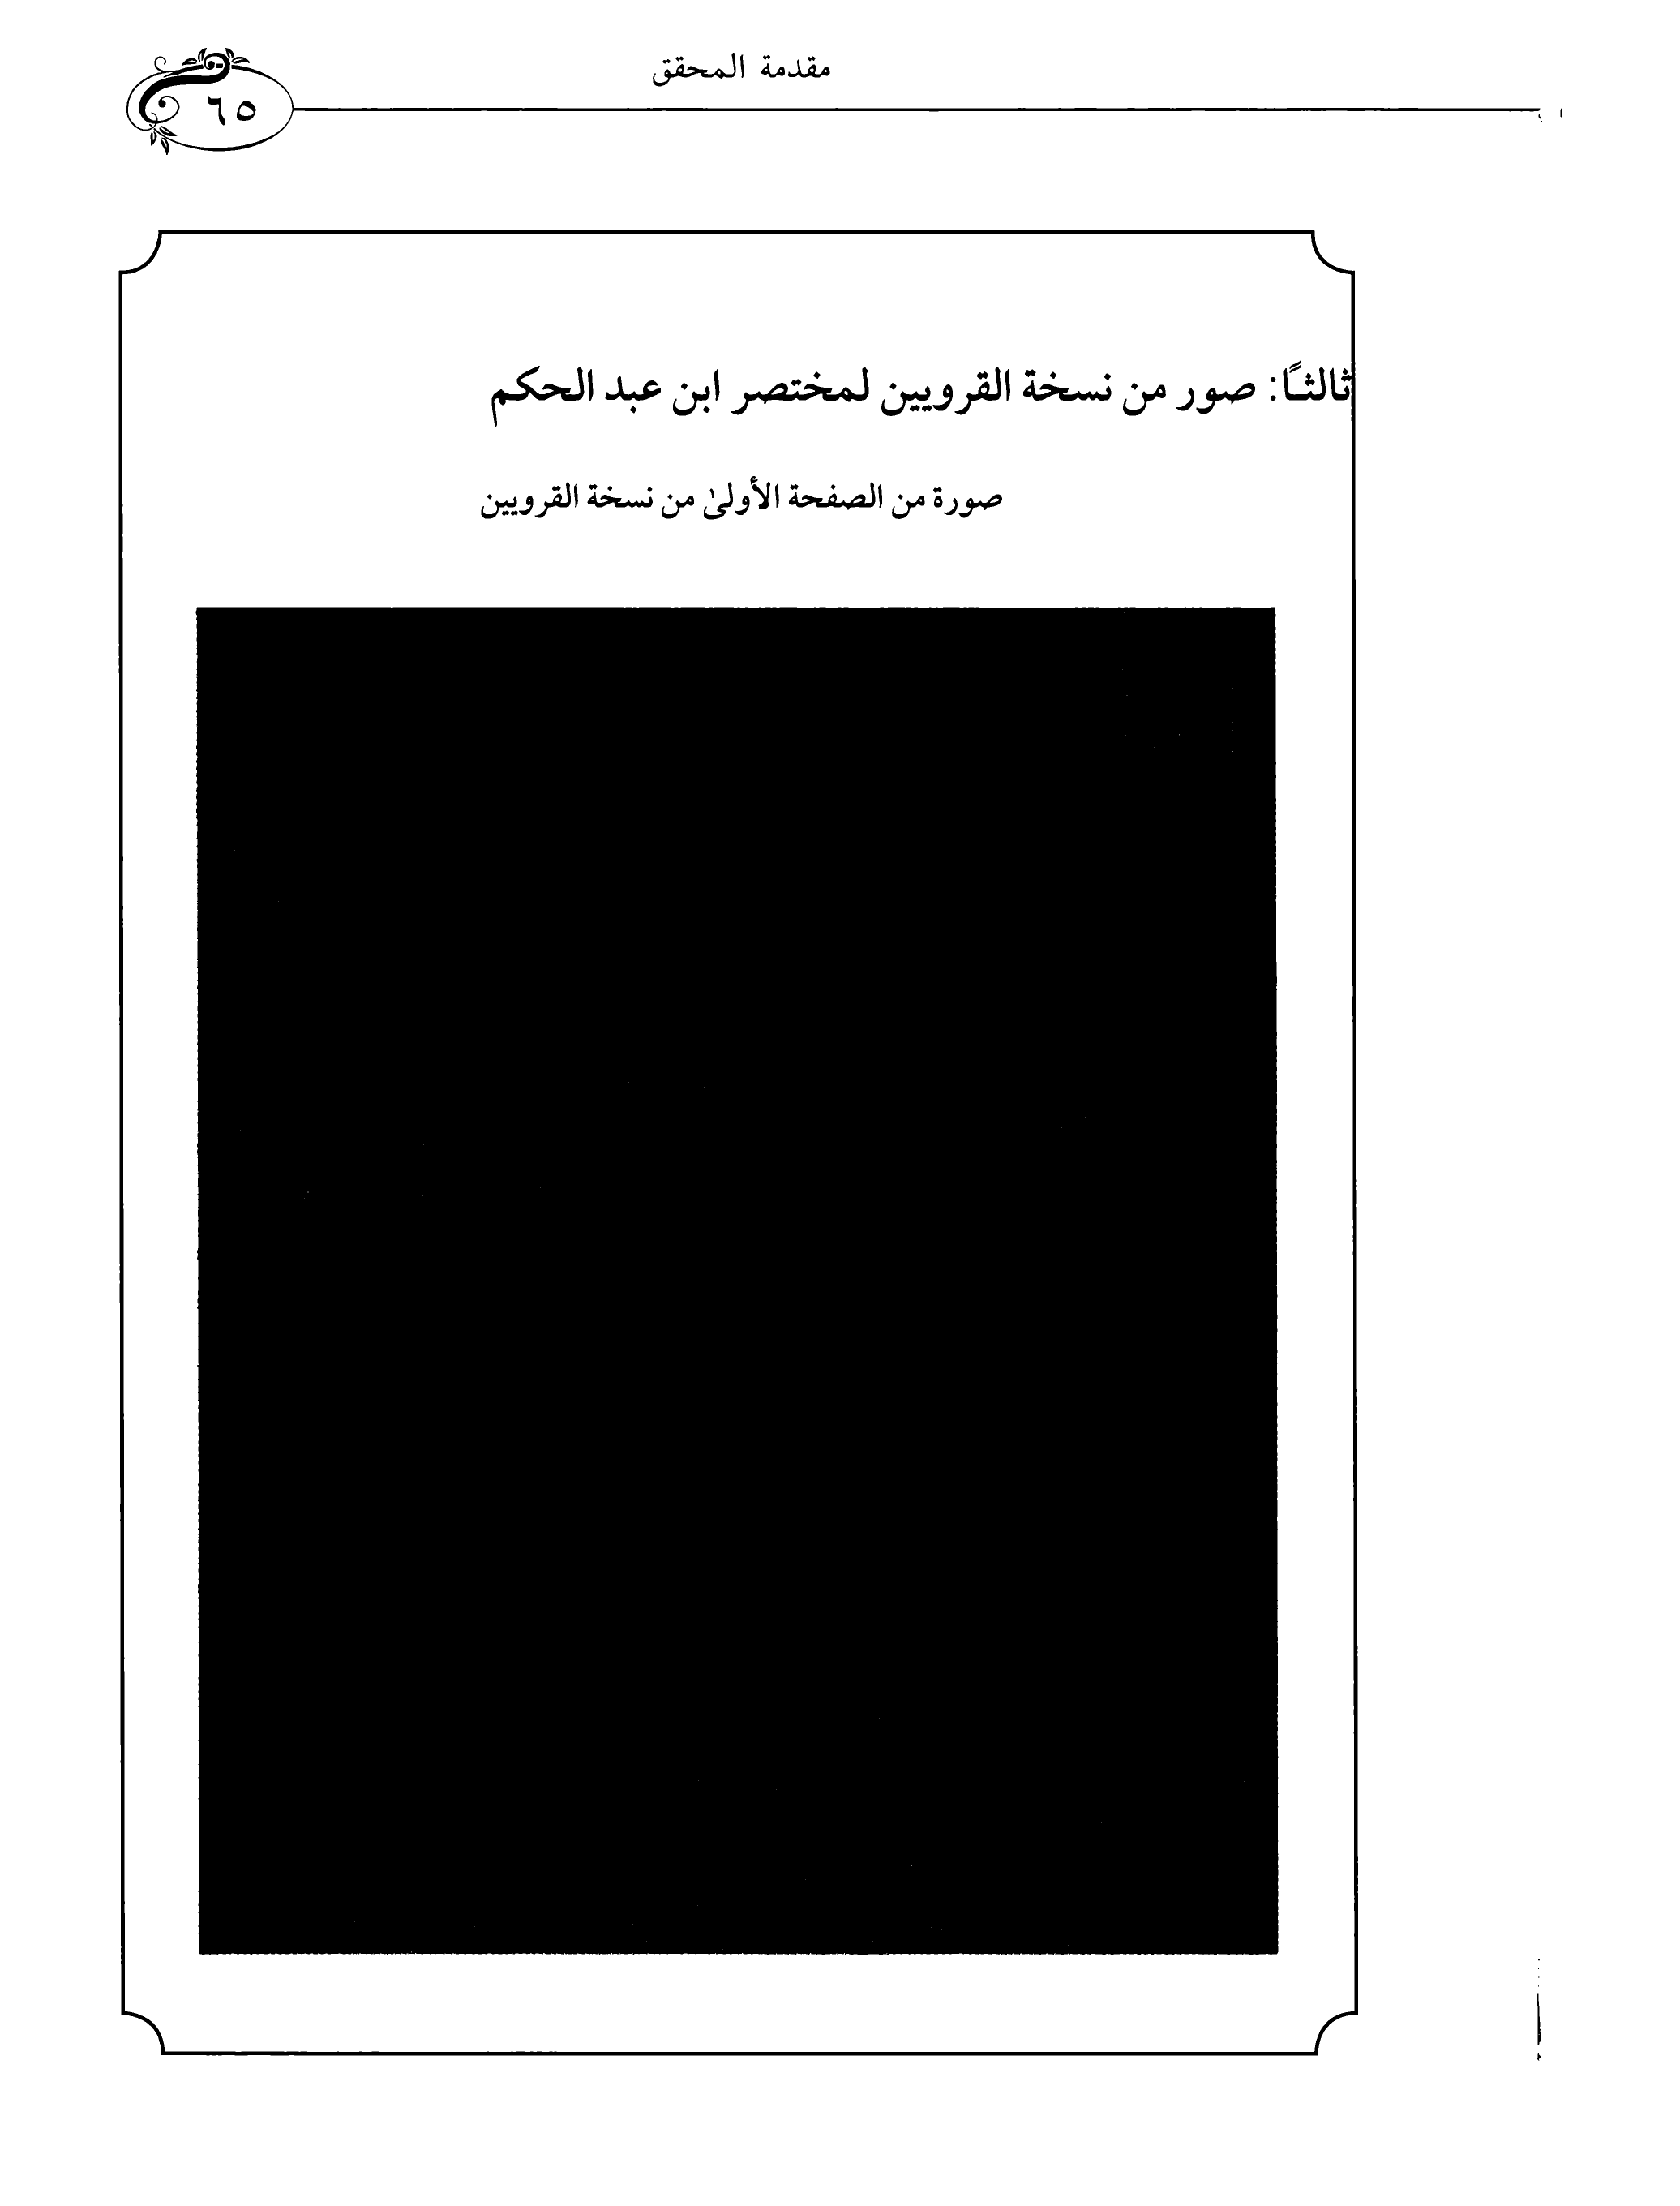 مقدمة المحقق
٦٥
ثالثًا: صور من نسخة القرويين لمختصر ابن عبد الحكم
صورة من الصفحة الأولىٰ من نسخة القرويين